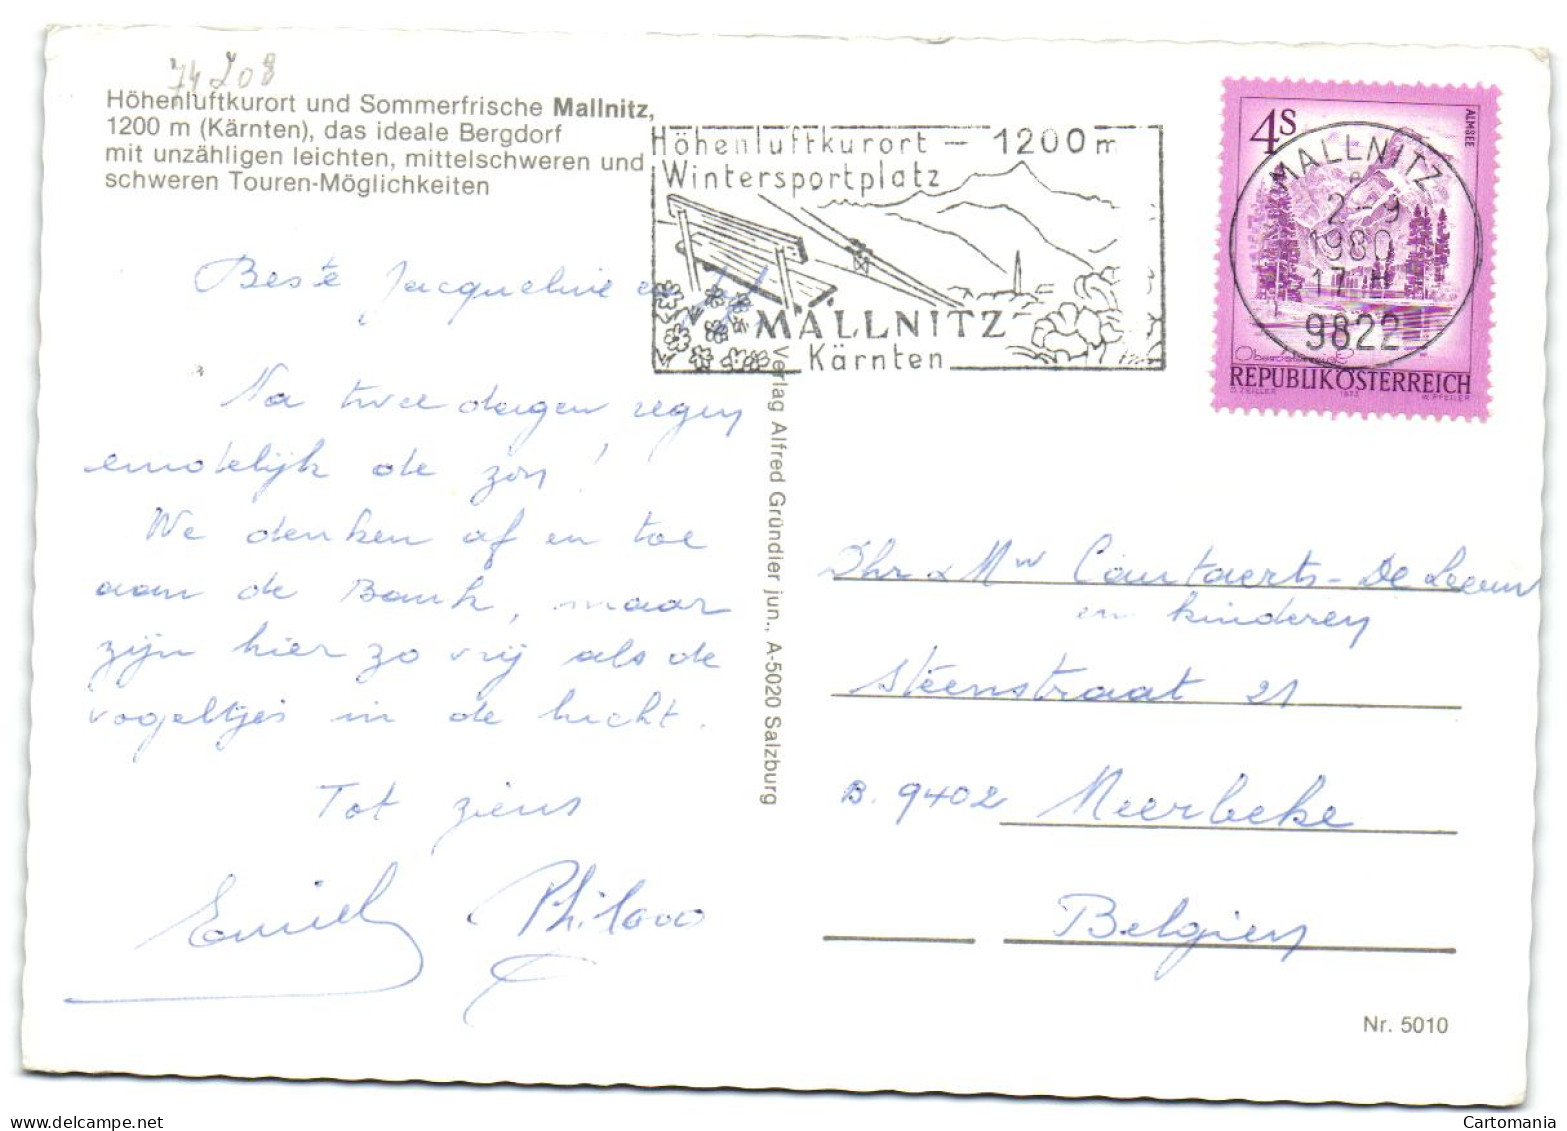 74208
Höhenluftkurort und Sommerfrische Mallnitz,
1200 m (Kärnten), das ideale Bergdorf
mit unzähligen leichten, mittelschweren und
schweren Touren-Möglichkeiten
Beste Jacqueline en
Na twee dagen regen
eindelijk de zon!
We denken af en toe
aan de Bank, maar
zijn hier zo vrij als de
vogeltjes in de lucht.
Tot ziens
Emiel Philovoo
Höhenluftkurort – 1200 m
Wintersportplatz
MALLNITZ
Kärnten
Verlag Alfred Gründler jun., A-5020 Salzburg
4S
ALMSEE
MALLNITZ
2–9
1980
17 H
9822
Oberösterreich
REPUBLIK ÖSTERREICH
O. ZEILLER 1973 W. PFEILER
Dhr & Mw Cautaerts-De Leeuw
en kinderen
Steenstraat 21
B. 9402 Meerbeke
Belgien
Nr. 5010
www.delcampe.net
Cartomania